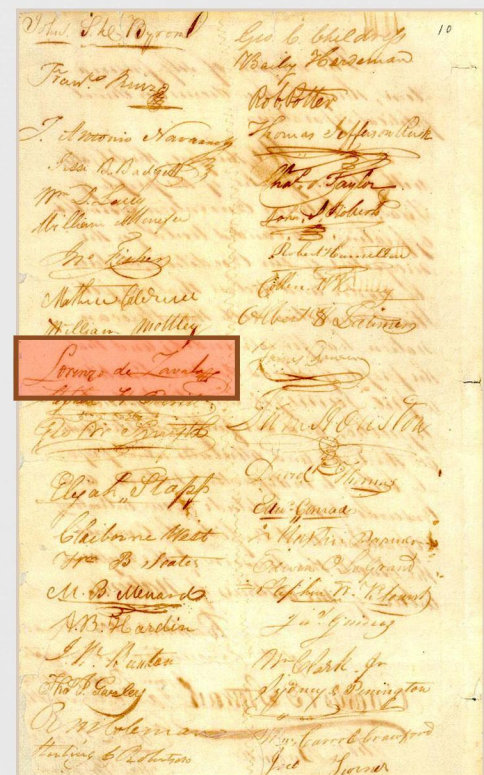 John S. D. Byrom
Fran.s Ruiz
J. Antonio Navarro
Jesse B. Badgett
Wm D. Lacey
William Menefee
Jno. Fisher
Mathew Caldwell
William Mottley
Lorenzo de Zavala
Geo W. Smyth
Elijah Stapp
Claiborne West
Wm B Scates
M. B. Menard
A. B. Hardin
J. W. Bunton
Thos. J. Gazley
R. M. Coleman
Sterling C. Robertson
Geo. C. Childress
Baily Hardeman
Rob. Potter
Thomas Jefferson Rusk
Chas. S. Taylor
John S. Roberts
Robert Hamilton
Collin McKinney
Albert H Latimer
James Power
Sam Houston
David Thomas
Edwd Conrad
Martin Parmer
Edwin O. Legrand
Stephen W. Blount
Jas. Gaines
Wm Clark Jr
Sydney O. Penington
Wm Carrol Crawford
Jno Turner
10